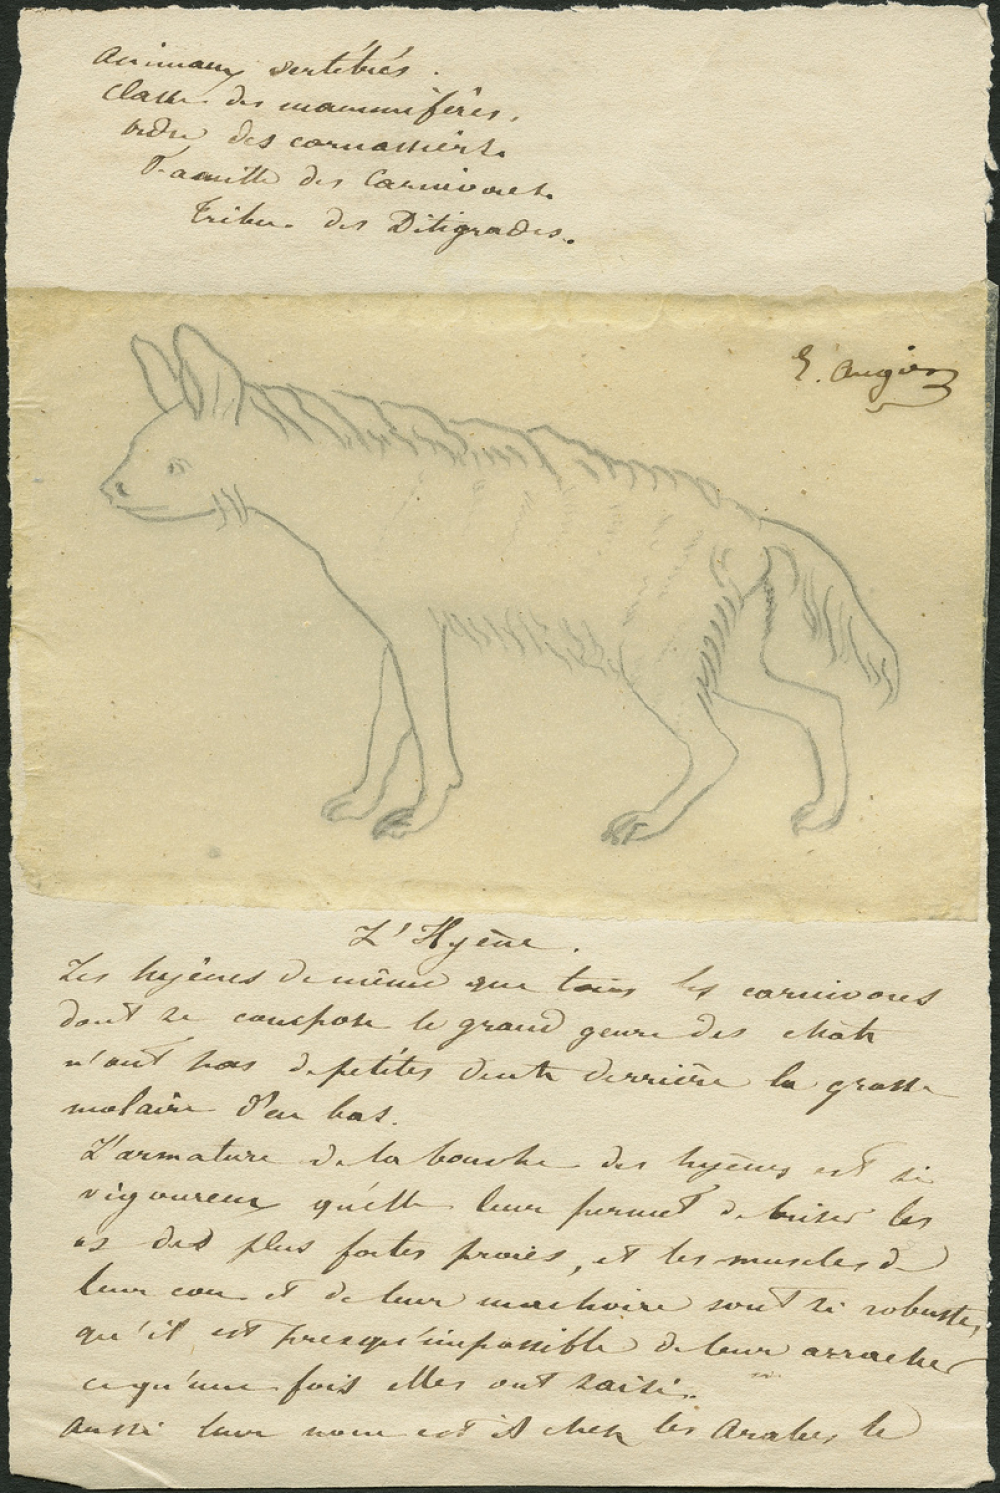 Animaux vertébrés.
Classe des mammifères.
Ordre des carnassiers.
Famille des Carnivores.
Tribu des Ditigrades.
E. Augier
L'Hyène.
Les hyènes de même que tous les carnivores
dont se compose le grand genre des chats
n'ont pas de petites dents derrière la grosse
molaire d'en bas.
L'armature de la bouche des hyènes est si
vigoureux qu'elle leur permet de briser les
os des plus fortes proies, et les muscles de
leur cou et de leur machoire sont si robustes,
qu'il est presqu'impossible de leur arracher
ce qu'une fois elles ont saisi.
Aussi leur nom est il chez les Arabes, le